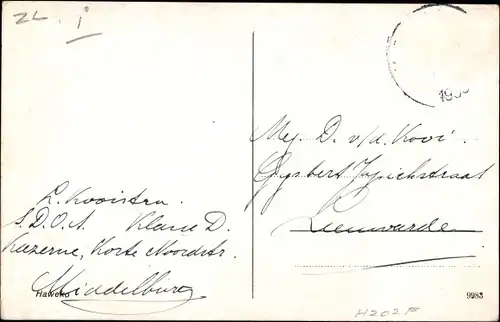 ZL. i
19
Mej. D. v/d. Kooi.
Gysbert Japichstraat
Leeuwarden
R. Kooistra.
S.D.O.A. Klasse D.
Kazerne, Korte Noordstr.
Middelburg
Haweko
9983
H202F